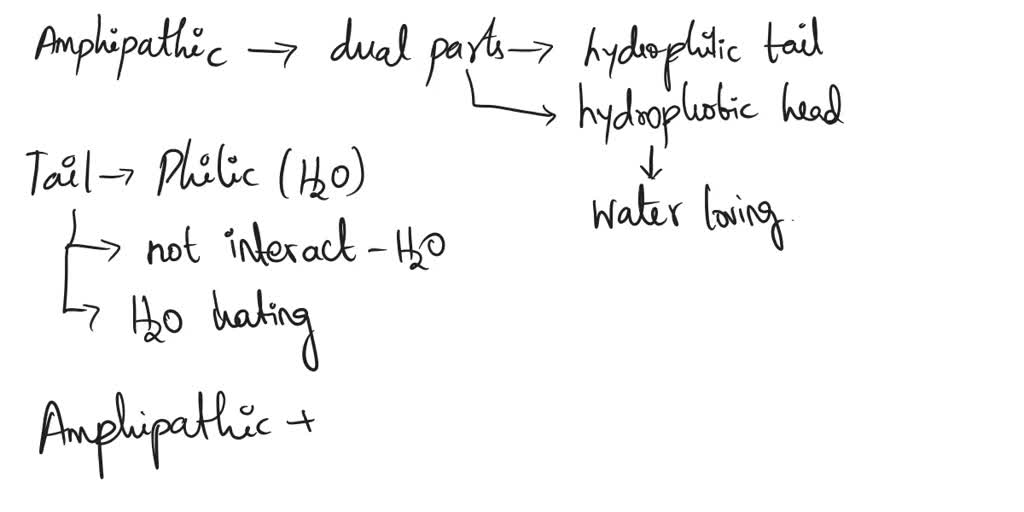 Amphipathic → dual parts → hydrophilic tail
→ hydrophobic head
↓
Tail → Philic (H2O)
water loving.
→ not interact - H2O
→ H2O hating
Amphipathic +